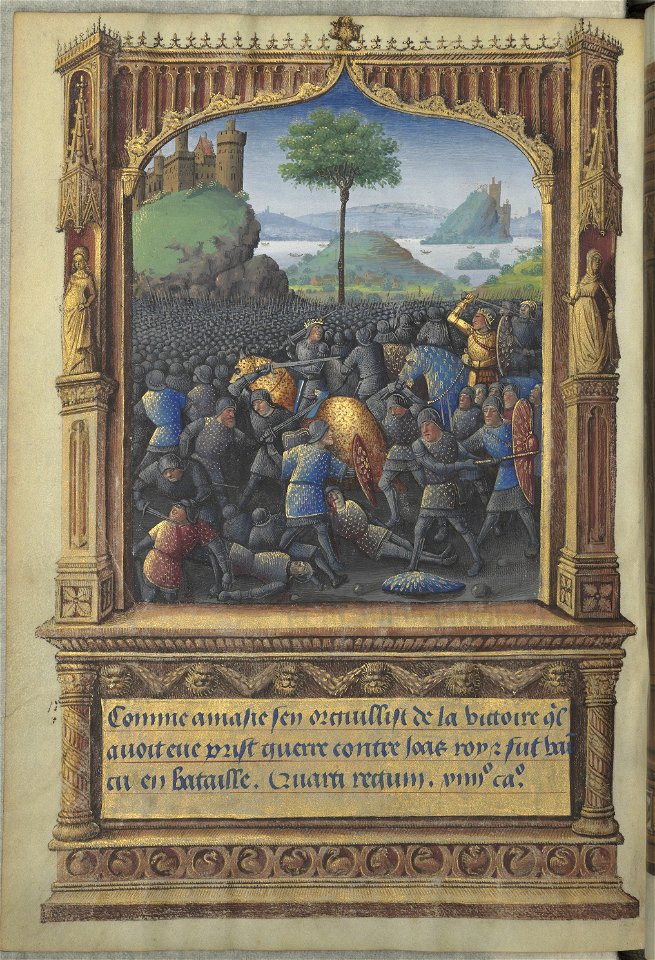 Comme amasie sen orguillist de la victoire q̃l
avoit eue prist guerre contre Joas roy ⁊ fut vaī
cu en bataille. Quarti regum. xiiii° ca°.